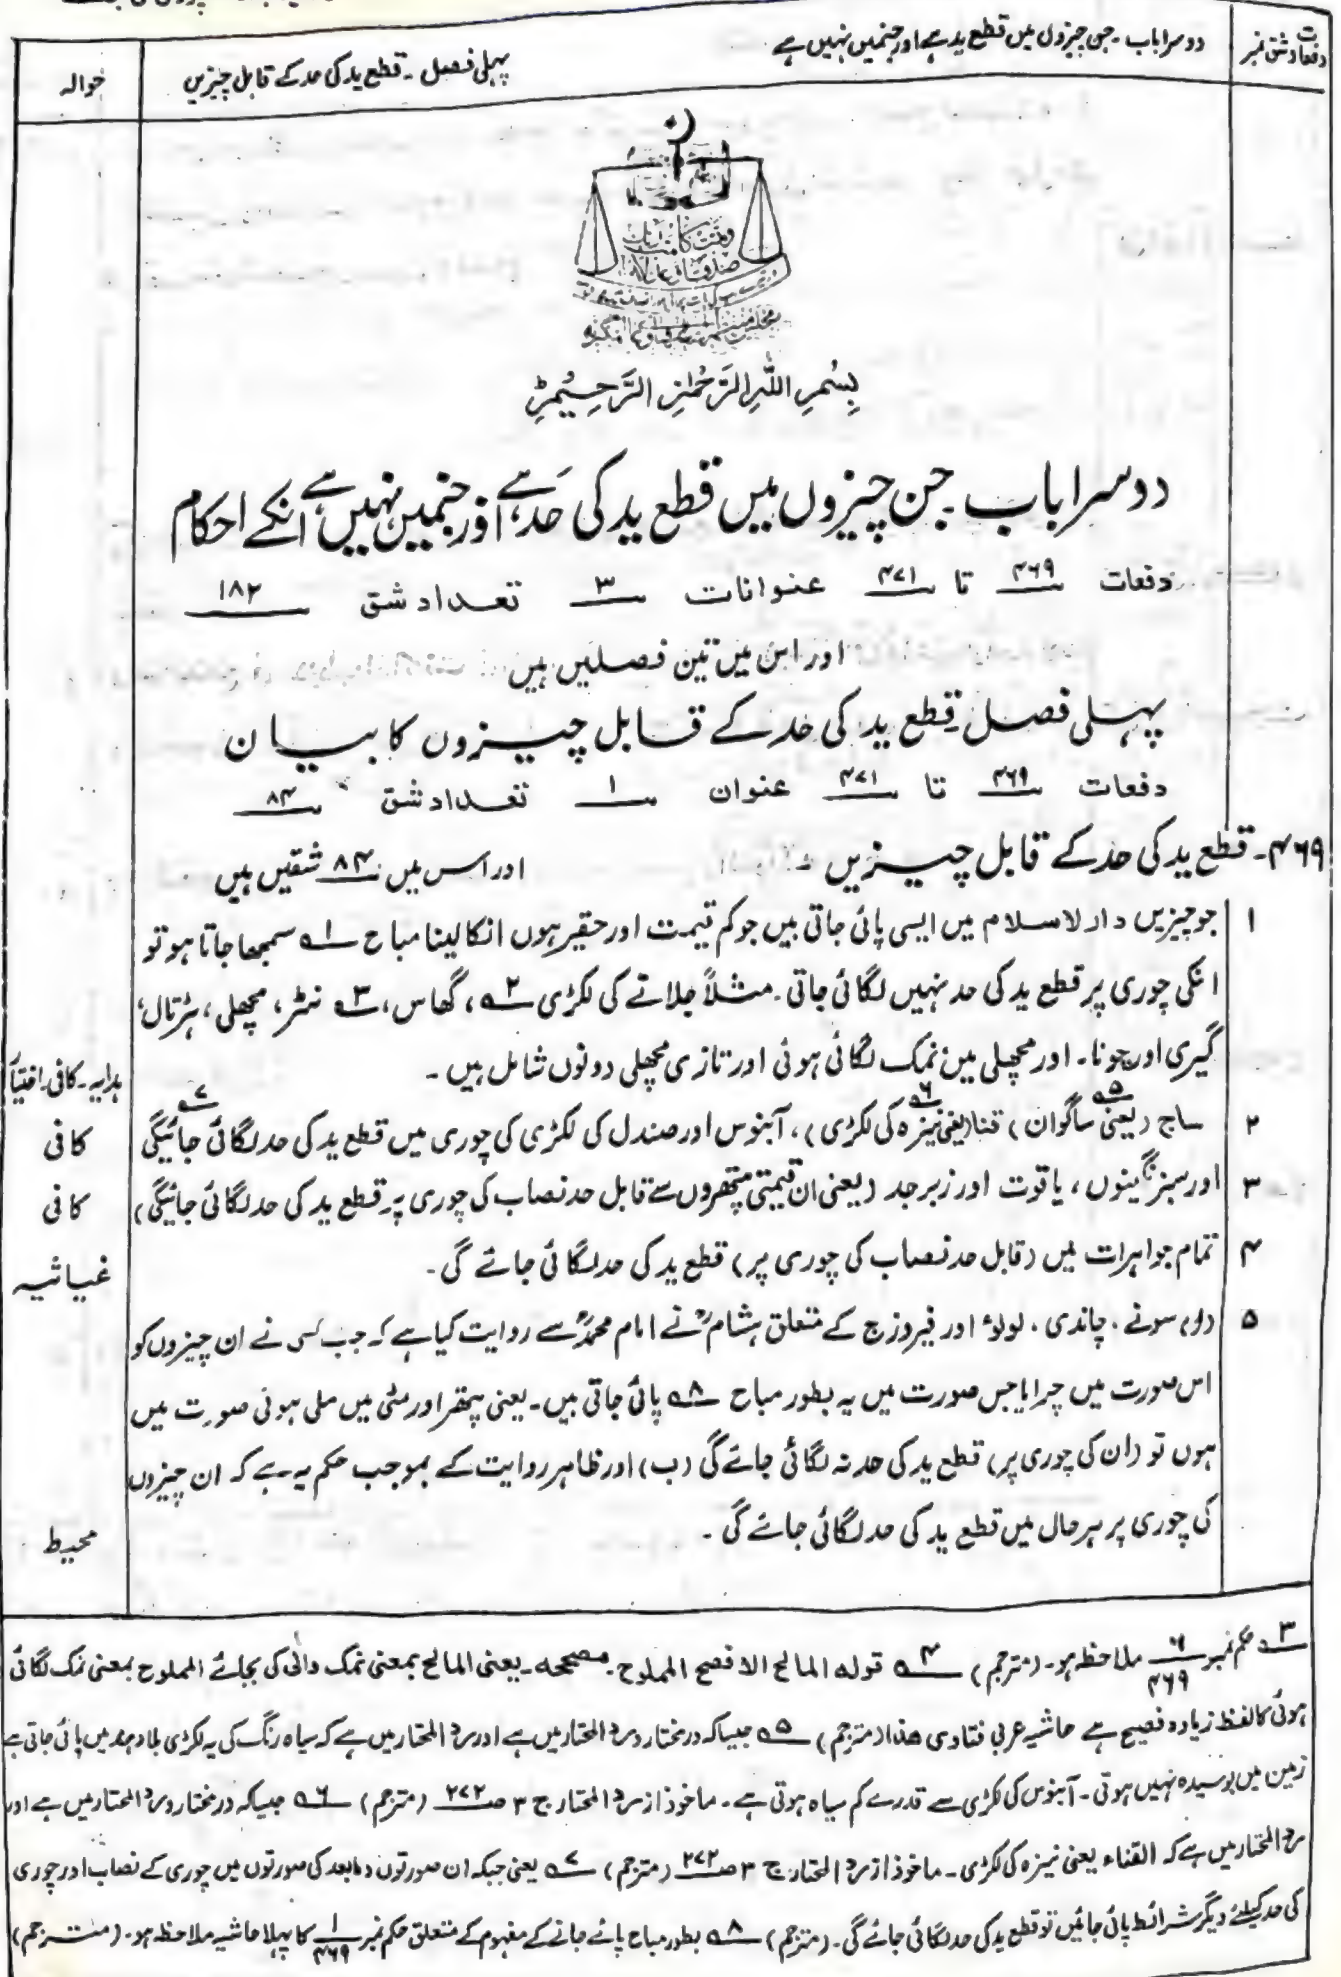 دفعات و شق نمبر
دوسرا باب ۔ جن چیزوں میں قطع ید ہے اور جنمیں نہیں ہے
پہلی فصل ۔ قطع ید کی حد کے قابل چیزیں
حوالہ
بِسْمِ اللّٰهِ الرَّحْمٰنِ الرَّحِيْمِ
دوسرا باب ۔ جن چیزوں میں قطع ید کی حَد ہے اور جنمیں نہیں ہے انکے احکام
دفعات ۴۶۹ تا ۴۷۱ عنوانات ۳ تعداد شق ۱۸۲
اور اس میں تین فصلیں ہیں
پہلی فصل ۔ قطع ید کی حد کے قابل چیزوں کا بیان
دفعات ۴۶۹ تا ۴۷۱ عنوان ۱ تعداد شق ۸۴
۴۶۹۔ قطع ید کی حد کے قابل چیزیں ۔ اور اس میں ۸۴ شقیں ہیں
۱ جو چیزیں دار لاسلام میں ایسی پائی جاتی ہیں جو کم قیمت اور حقیر ہوں انکا لینا مباح ۱ه سمجھا جاتا ہو تو
انکی چوری پر قطع ید کی حد نہیں لگائی جاتی ۔ مثلاً جلانے کی لکڑی ۲ه ، گھاس ، ۳ه نٹر ، مچھلی ، ہڑتال ،
گیری اور چونا ۔ اور مچھلی میں نمک لگائی ہوئی اور تازی مچھلی دونوں شامل ہیں ۔ ہدایہ ۔ کافی ۔ اختیار
۲ ساج (یعنی ساگوان) ۵ه قنا (یعنی نیزہ کی لکڑی) ۶ه ، آبنوس اور صندل کی لکڑی کی چوری میں قطع ید کی حد لگائی جائیگی ۷ه کافی
۳ اور سبز نگینوں ، یاقوت اور زبرجد (یعنی ان قیمتی پتھروں سے قابل حد نصاب کی چوری پر قطع ید کی حد لگائی جائیگی) کافی
۴ تمام جواہرات میں (قابل حد نصاب کی چوری پر) قطع ید کی حد لگائی جائے گی ۔ غیاثیہ
۵ (ا) سونے ، چاندی ، لولوٴ اور فیروزج کے متعلق ہشامؒ نے امام محمدؒ سے روایت کیا ہے کہ جب کسی نے ان چیزوں کو
اس صورت میں چرایا جس صورت میں یہ بطور مباح ۸ه پائی جاتی ہیں ۔ یعنی پتھر اور مٹی میں ملی ہوئی صورت میں
ہوں تو (ان کی چوری پر) قطع ید کی حد نہ لگائی جائے گی (ب) اور ظاہر روایت کے بموجب حکم یہ ہے کہ ان چیزوں
کی چوری پر ہر حال میں قطع ید کی حد لگائی جائے گی ۔ محیط
۳ه حکم نمبر ۶/۴۶۹ ملاحظہ ہو ۔ (مترجم) ۴ه قوله المالح الافصح المملوح ۔ مصححه ۔ یعنی المالح بمعنی نمک والی کی بجائے المملوح بمعنی نمک لگائی
ہوئی کا لفظ زیادہ فصیح ہے حاشیہ عربی فتاوی ھذا (مترجم) ۵ه جیسا کہ درمختار و رد المحتار میں ہے اور رد المحتار میں ہے کہ سیاہ رنگ کی یہ لکڑی بلاد ہند میں پائی جاتی ہے
زمین میں بوسیدہ نہیں ہوتی ۔ آبنوس کی لکڑی سے قدرے کم سیاہ ہوتی ہے ۔ ماخوذ از رد المحتار ج ۳ صـ ۲۷۲ (مترجم) ۶ه جیسا کہ درمختار و رد المحتار میں ہے اور
رد المحتار میں ہے کہ القناء یعنی نیزہ کی لکڑی ۔ ماخوذ از رد المحتار ج ۳ صـ ۲۷۲ (مترجم) ۷ه یعنی جبکہ ان صورتوں و مابعد کی صورتوں میں چوری کے نصاب اور چوری
کی حد کیلئے دیگر شرائط پائی جائیں تو قطع ید کی حد لگائی جائے گی ۔ (مترجم) ۸ه بطور مباح پائے جانے کے مفہوم کے متعلق حکم نمبر ۱/۴۶۹ کا پہلا حاشیہ ملاحظہ ہو ۔ (مترجم)